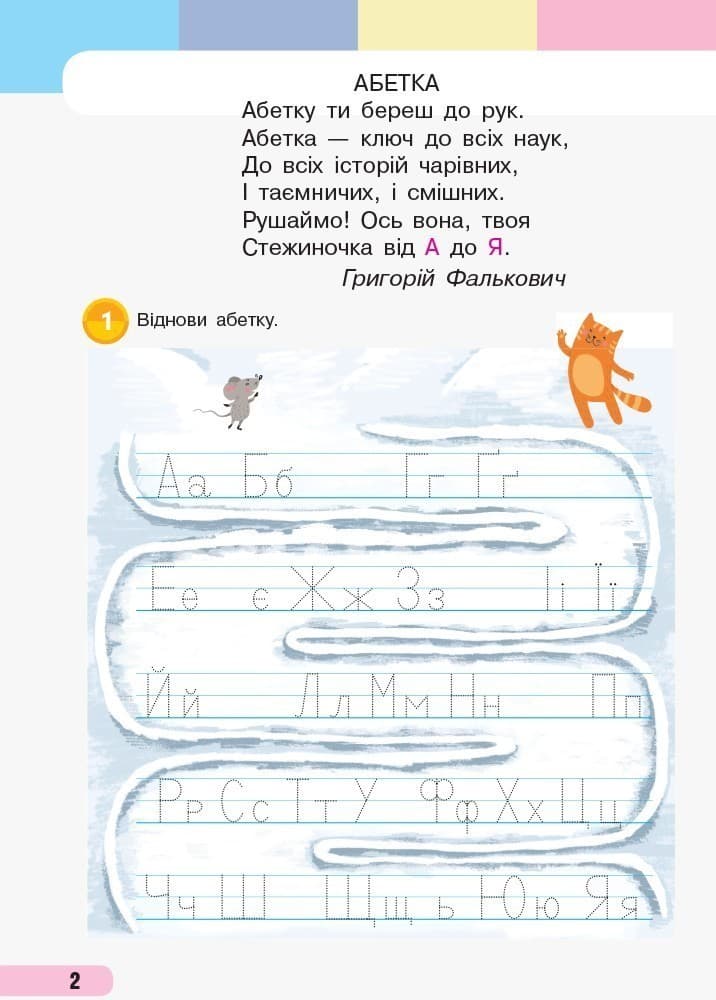 АБЕТКА
Абетку ти береш до рук.
Абетка — ключ до всіх наук,
До всіх історій чарівних,
І таємничих, і смішних.
Рушаймо! Ось вона, твоя
Стежиночка від А до Я.
Григорій Фалькович
1 Віднови абетку.
Аа Бб Гг Ґґ
Ее є Жж Зз Іі Її
Йй Лл Мм Нн Пп
Рр Сс Тт У Фф Хх Цц
Чч Ш Щщ ь Юю Яя
2